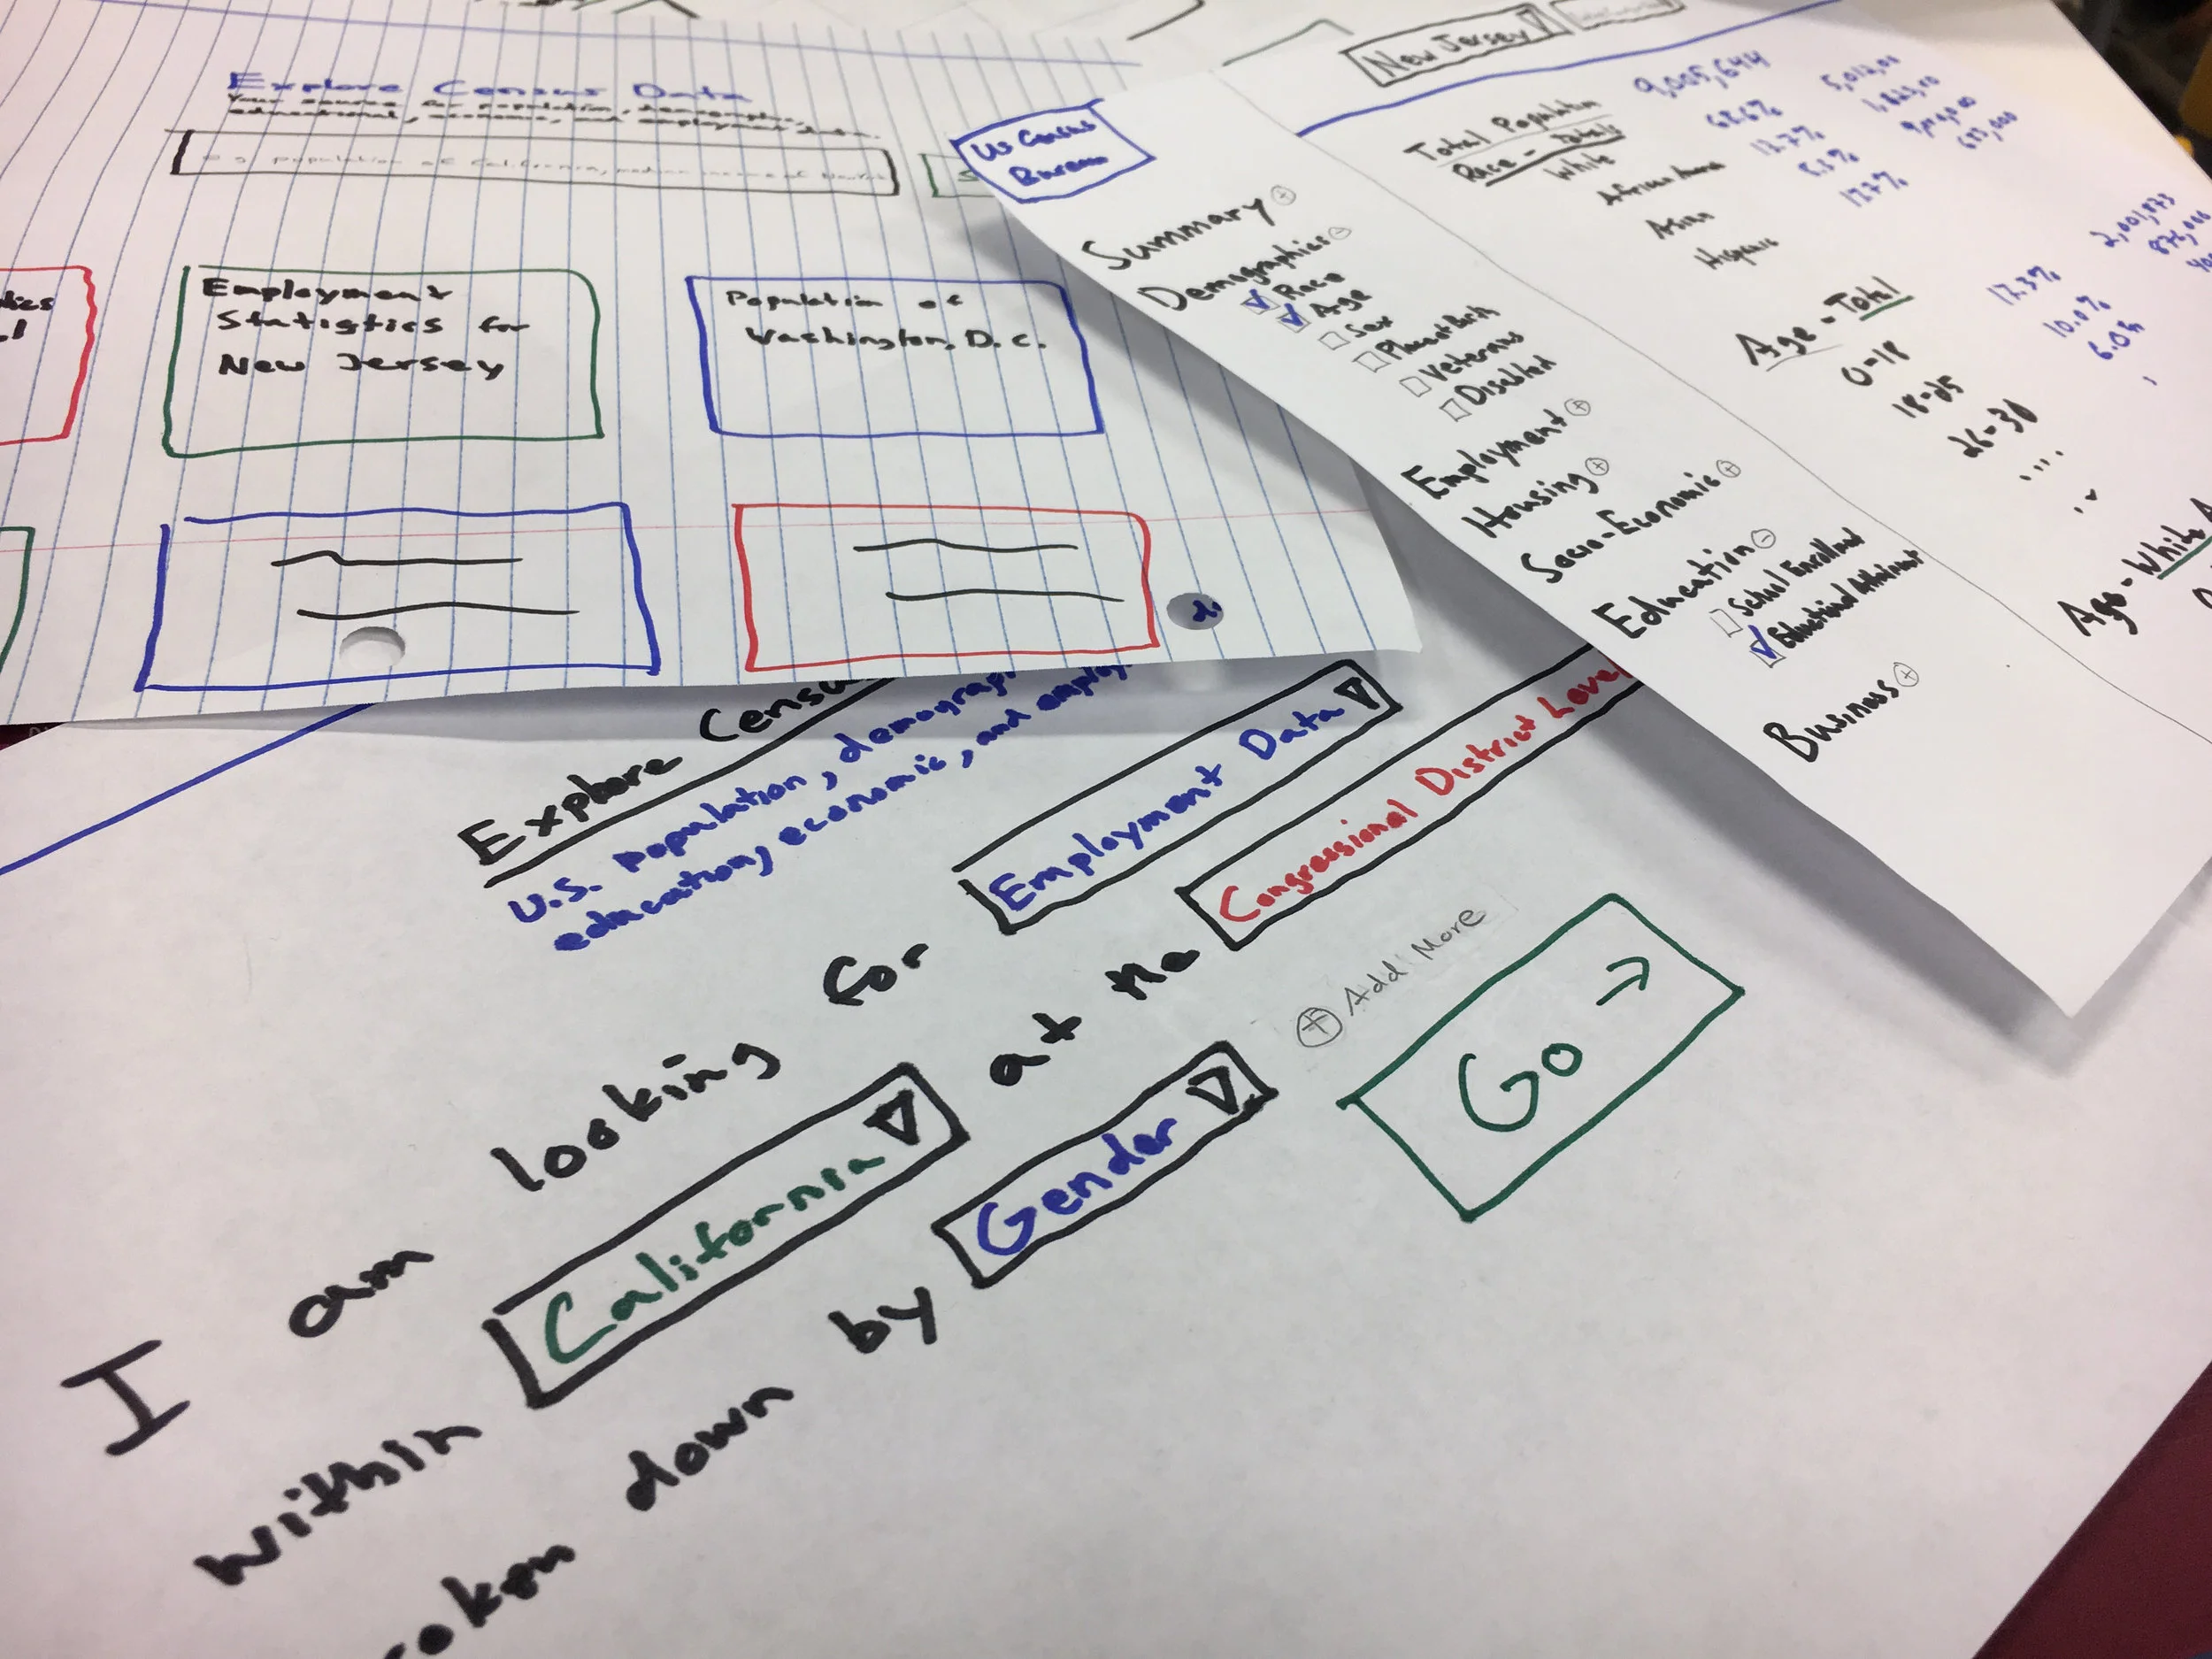 Explore Census Data
Your source for population, demographic,
educational, economic, and employment data.
e.g. population of California, median income of
S
Employment
Statistics for
New Jersey
Population of
Washington, D.C.
US Census
Bureau
Summary +
Demographics -
Race
Age
Sex
Place of Birth
Veterans
Disabled
Employment +
Housing +
Socio-Economic +
Education -
School Enrollment
Educational Attainment
Business +
New Jersey
Total Population 9,005,644
Race - Totals
White 68.6%
African 13.7%
Asian 8.3%
Hispanic 17.7%
Age - Total
0-18 17.3% 2,001,873
18-25 10.0%
26-30
....
Age - White
Explore Censu
U.S. population, demograp
education, economic, and employ
I am looking for Employment Data
within California at the Congressional District Level
roken down by Gender + Add More
Go →